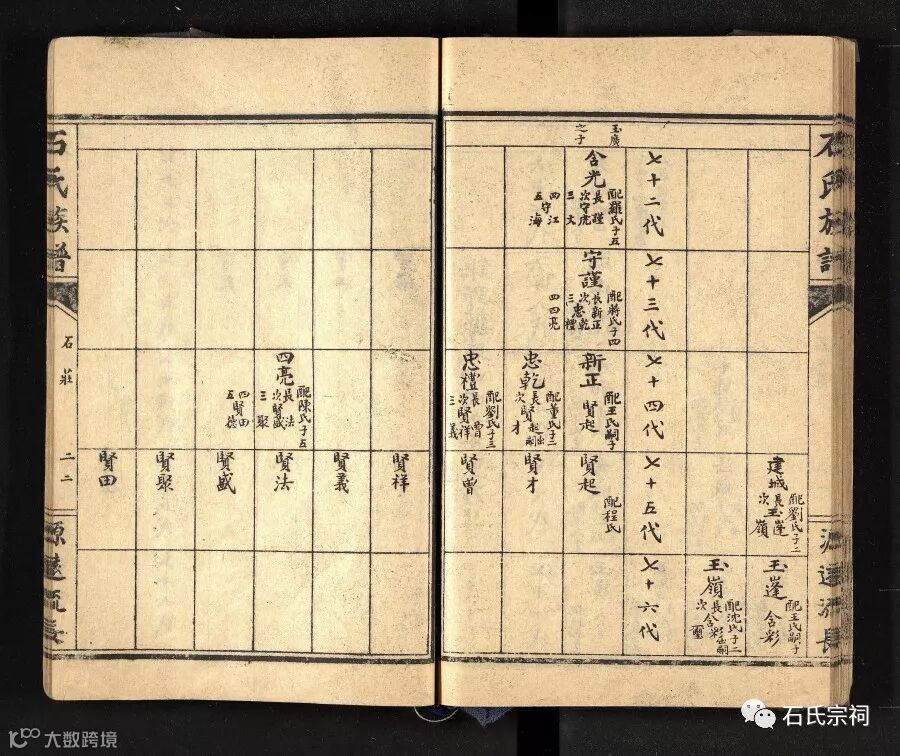 石氏族譜
源遠流長
建城
配劉氏子二
長玉蓬
次玉嶺
玉蓬
配王氏嗣子
含彩
玉嶺
配沈氏子二
長含彩出嗣
次
七十二代
七十三代
七十四代
七十五代
七十六代
玉廣
之子
含光
配羅氏子五
長謹
次守虎
三文
四守江
五海
守謹
配蔣氏子四
長新正
次忠乾
三忠禮
四四亮
新正
配王氏嗣子
賢起
賢起
配程氏
忠乾
配董氏子二
長賢起出嗣
次賢才
賢才
忠禮
配劉氏子三
長賢曾
次賢祥
三賢義
賢曾
賢祥
賢義
四亮
配陳氏子五
長法
次賢盛
三聚
四賢田
五德
賢法
賢盛
賢聚
賢田
石氏族譜
石莊
二二
源遠流長
石氏宗祠
大数跨境